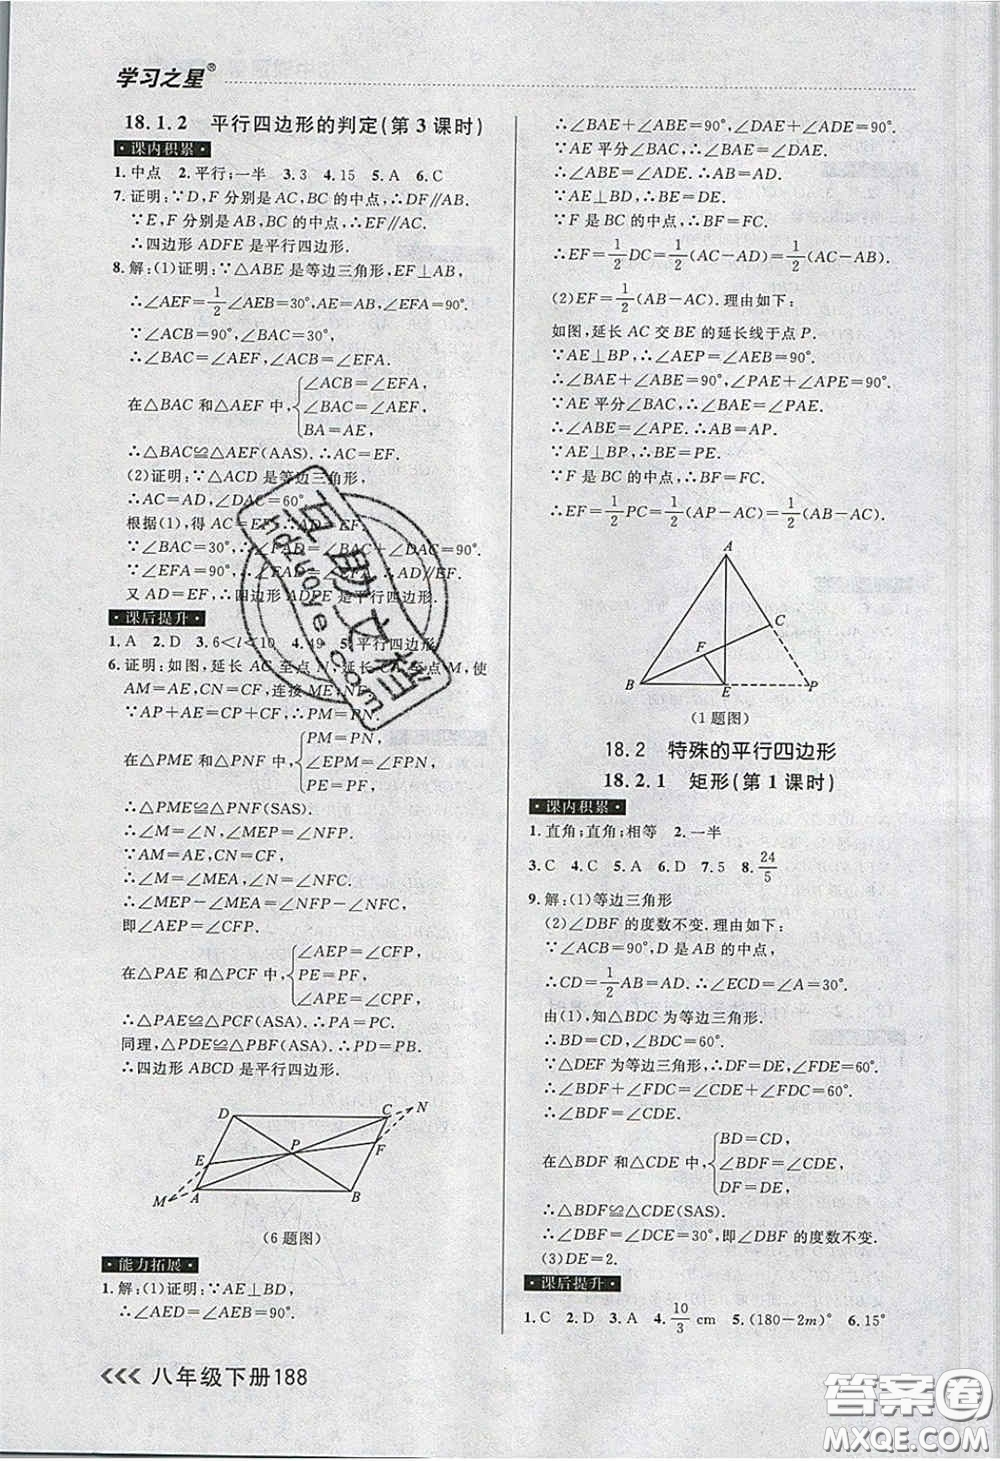 学习之星®
18.1.2 平行四边形的判定(第3课时)
·课内积累·
1.中点 2.平行;一半 3.3 4.15 5.A 6.C
7.证明:∵D,F分别是AC,BC的中点,∴DF∥AB.
∵E,F分别是AB,BC的中点,∴EF∥AC.
∴四边形ADFE是平行四边形.
8.解:(1)证明:∵△ABE是等边三角形,EF⊥AB,
∴∠AEF=1/2∠AEB=30°,AE=AB,∠EFA=90°.
∵∠ACB=90°,∠BAC=30°,
∴∠BAC=∠AEF,∠ACB=∠EFA.
在△BAC和△AEF中,{∠ACB=∠EFA,
∠BAC=∠AEF,
BA=AE,
∴△BAC≌△AEF(AAS).∴AC=EF.
(2)证明:∵△ACD是等边三角形,
∴AC=AD,∠DAC=60°.
根据(1),得AC=EF,∴AD=EF.
∵∠BAC=30°,∴∠FAD=∠BAC+∠DAC=90°.
∵∠EFA=90°,∴AD∥EF.
又AD=EF,∴四边形ADFE是平行四边形.
·课后提升·
1.A 2.D 3.6<l<10 4.49 5.平行四边形
6.证明:如图,延长AC至点N,延长CA至点M,使
AM=AE,CN=CF,连接ME,NF.
∵AP+AM=CP+CF,∴PM=PN.
在△PME和△PNF中,{PM=PN,
∠EPM=∠FPN,
PE=PF,
∴△PME≌△PNF(SAS).
∴∠M=∠N,∠MEP=∠NFP.
∵AM=AE,CN=CF,
∴∠M=∠MEA,∠N=∠NFC.
∴∠MEP-∠MEA=∠NFP-∠NFC.
即∠AEP=∠CFP.
在△PAE和△PCF中,{∠AEP=∠CFP,
PE=PF,
∠APE=∠CPF,
∴△PAE≌△PCF(ASA).∴PA=PC.
同理,△PDE≌△PBF(ASA).∴PD=PB.
∴四边形ABCD是平行四边形.
D C N
P F
E
M A B
(6题图)
·能力拓展·
1.解:(1)证明:∵AE⊥BD,
∴∠AED=∠AEB=90°.
∴∠BAE+∠ABE=90°,∠DAE+∠ADE=90°.
∵AE平分∠BAC,∴∠BAE=∠DAE.
∴∠ABE=∠ADE.∴AB=AD.
∵AE⊥BD,∴BE=DE.
∵F是BC的中点,∴BF=FC.
∴EF=1/2DC=1/2(AC-AD)=1/2(AC-AB).
(2)EF=1/2(AB-AC).理由如下:
如图,延长AC交BE的延长线于点P.
∵AE⊥BP,∴∠AEP=∠AEB=90°.
∴∠BAE+∠ABE=90°,∠PAE+∠APE=90°.
∵AE平分∠BAC,∴∠BAE=∠PAE.
∴∠ABE=∠APE.∴AB=AP.
∵AE⊥BP,∴BE=PE.
∵F是BC的中点,∴BF=FC.
∴EF=1/2PC=1/2(AP-AC)=1/2(AB-AC).
A
C
F
B E P
(1题图)
18.2 特殊的平行四边形
18.2.1 矩形(第1课时)
·课内积累·
1.直角;直角;相等 2.一半
3.C 4.C 5.A 6.D 7.5 8.24/5
9.解:(1)等边三角形
(2)∠DBF的度数不变.理由如下:
∵∠ACB=90°,D是AB的中点,
∴CD=1/2AB=AD.∴∠ECD=∠A=30°.
由(1),知△BDC为等边三角形.
∴BD=CD,∠BDC=60°.
∵△DEF为等边三角形,∴DF=DE,∠FDE=60°.
∴∠BDF+∠FDC=∠CDE+∠FDC=60°.
∴∠BDF=∠CDE.
在△BDF和△CDE中,{BD=CD,
∠BDF=∠CDE,
DF=DE,
∴△BDF≌△CDE(SAS).
∴∠DBF=∠DCE=30°,即∠DBF的度数不变.
(3)DE=2.
·课后提升·
1.C 2.D 3.A 4.10/3 cm 5.(180-2m)° 6.15°
八年级下册188
互助文档
hdzuoye.com
答案圈
MXQE.COM